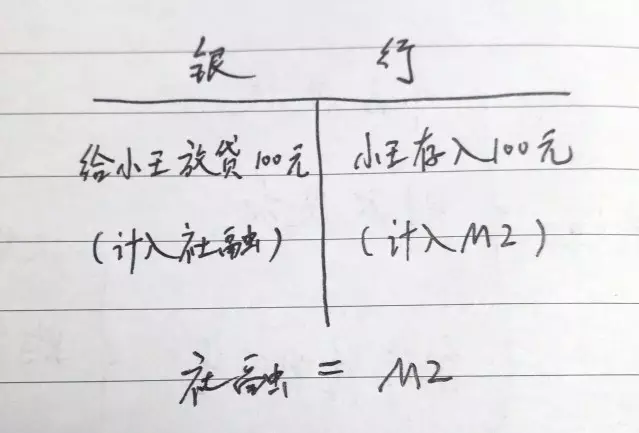 银 行
给小王放贷100元 小王存入100元
(计入社融) (计入M2)
社融 = M2